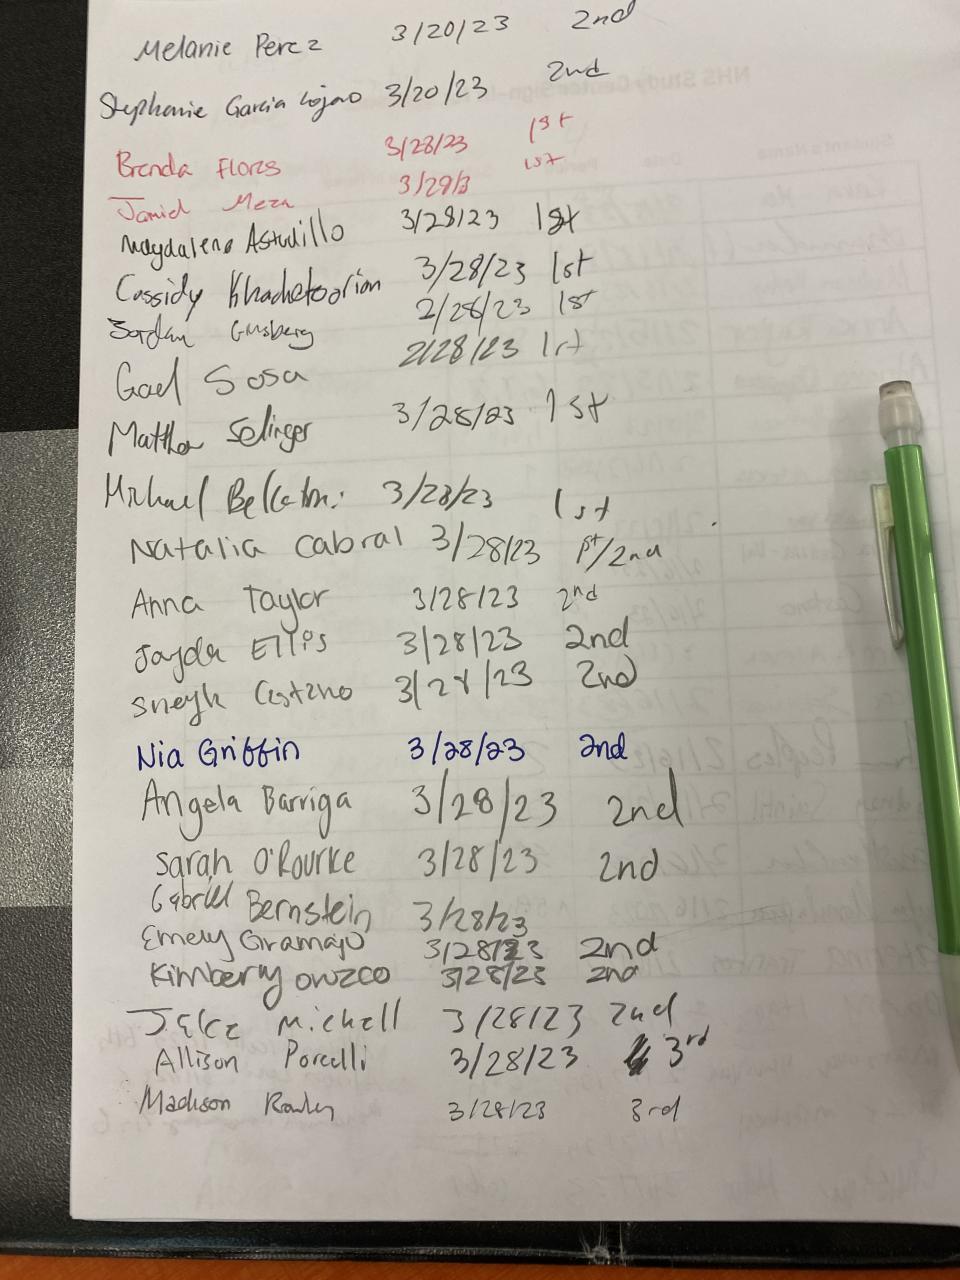 Melanie Perez 3/20/23 2nd
Stephanie Garcia Lojano 3/20/23 2nd
Brenda Flores 3/28/23 1st
Jamid Meza 3/29/3 1st
Magdaleno Astudillo 3/28/23 1st
Cassidy Khachetoorian 3/28/23 1st
Jordan Ginsberg 2/28/23 1st
Gael Sosa 2/28/23 1st
Matthew Selinger 3/28/23 1st
Michael 3/28/23 1st
Natalia Cabral 3/28/23 1st/2nd
Anna Taylor 3/28/23 2nd
Jayda Ellis 3/28/23 2nd
3/28/23 2nd
Nia Griffin 3/28/23 2nd
Angela Barriga 3/28/23 2nd
Sarah O'Rourke 3/28/23 2nd
Gabriel Bernstein 3/28/23
Emely Gramajo 3/28/23 2nd
Kimberly Orozco 3/28/23 2nd
Michell 3/28/23 2nd
Allison Porcelli 3/28/23 3rd
Madison 3/28/23 3rd